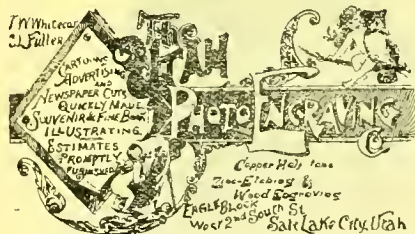 T.W. Whitecar
J.J. Fuller
CARTOONS
ADVERTISING
AND
NEWSPAPER CUTS
QUICKLY MADE.
SOUVENIR & FINE BOOK
ILLUSTRATING
ESTIMATES
PROMPTLY
FURNISHED
THE
UTAH
PHOTO ENGRAVING CO
Copper Half tone
Zinc-Etching &
Wood Engraving
EAGLE BLOCK
West 2nd South St
Salt Lake City, Utah